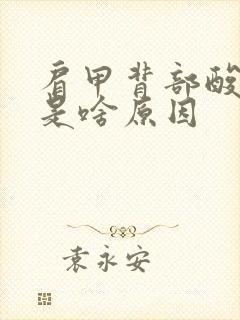 肩甲背部酸
是啥原因
袁永安